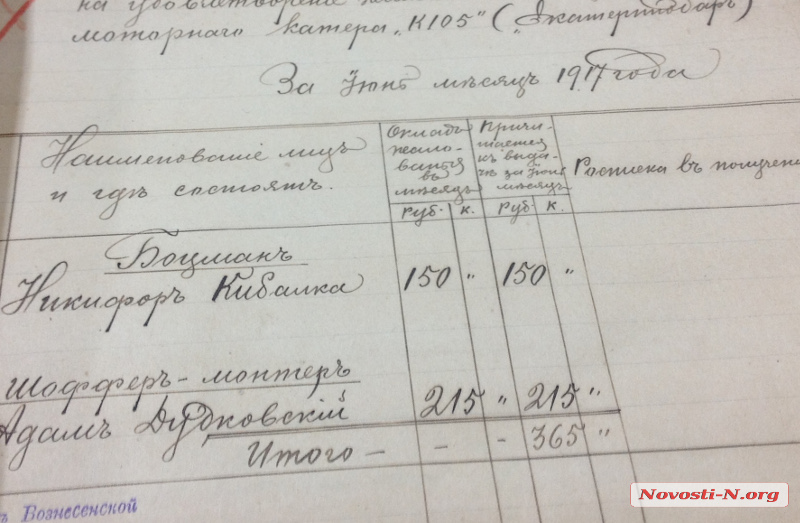 на удовлетворение
моторнаго катера „К105" („Екатеринодаръ")
За Iюнь мѣсяцъ 1917 года
Наименованiе лицъ
и гдѣ состоятъ.
Окладъ
жало-
ванья
въ
мѣсяцъ
Руб. к.
Причи-
тается
къ выда-
чѣ за Iюнь
мѣсяцъ
Руб. к.
Росписка въ получени
Боцманъ
Никифоръ Кибалка 150 " 150 "
Шофферъ-монтеръ
Адамъ Дудковскiй 215 " 215 "
Итого - - - 365 "
ъ Вознесенской
Novosti-N.org